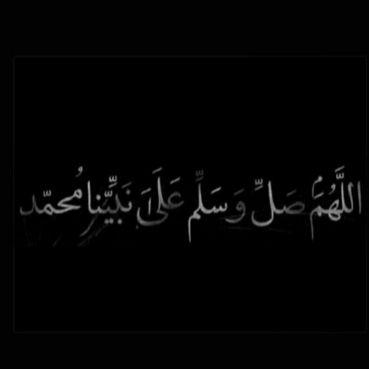 اللَّهُمَّ صَلِّ وَسَلِّمْ عَلَىٰ نَبِيِّنَا مُحمّد